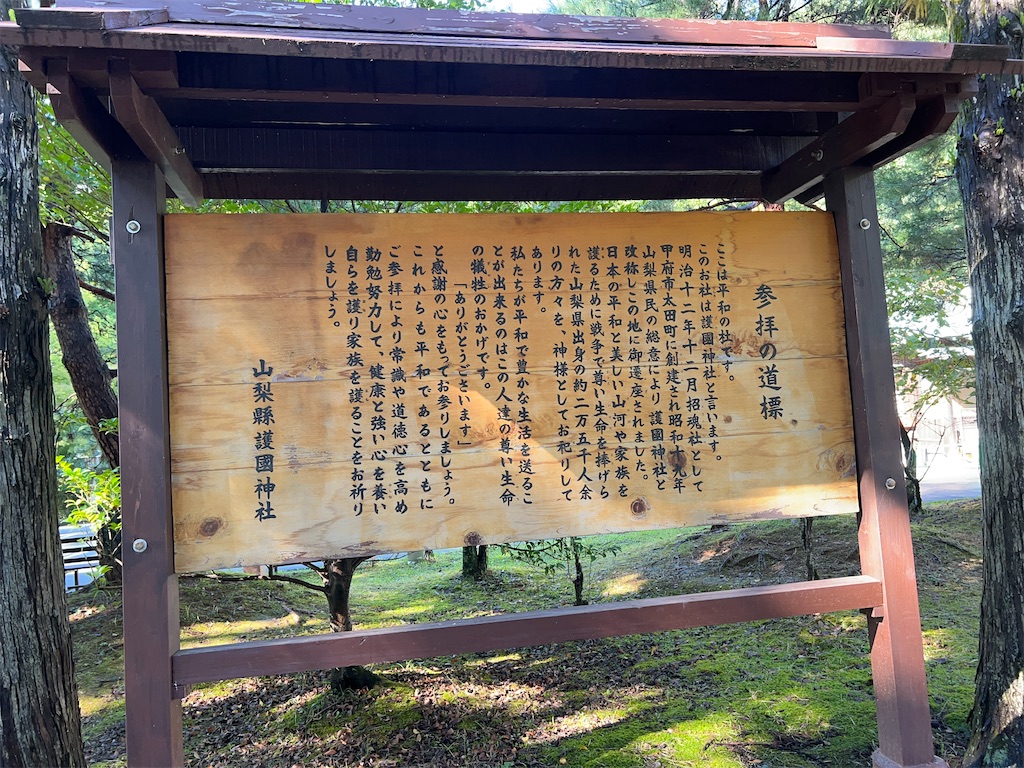 参拝の道標
ここは平和の社です。
このお社は護國神社と言います。
明治十二年十一月招魂社として
甲府市太田町に創建され昭和十九年
山梨県民の総意により護國神社と
改称しこの地に御遷座されました。
日本の平和と美しい山河や家族を
護るために戦争で尊い生命を捧げら
れた山梨県出身の約二万五千人余
りの方々を、神様としてお祀りして
あります。
私たちが平和で豊かな生活を送るこ
とが出来るのはこの人達の尊い生命
の犠牲のおかげです。
「ありがとうございます」
と感謝の心をもってお参りしましょう。
これからも平和であるとともに
ご参拝により常識や道徳心を高め
勤勉努力して、健康と強い心を養い
自らを護り家族を護ることをお祈り
しましょう。
山梨縣護國神社